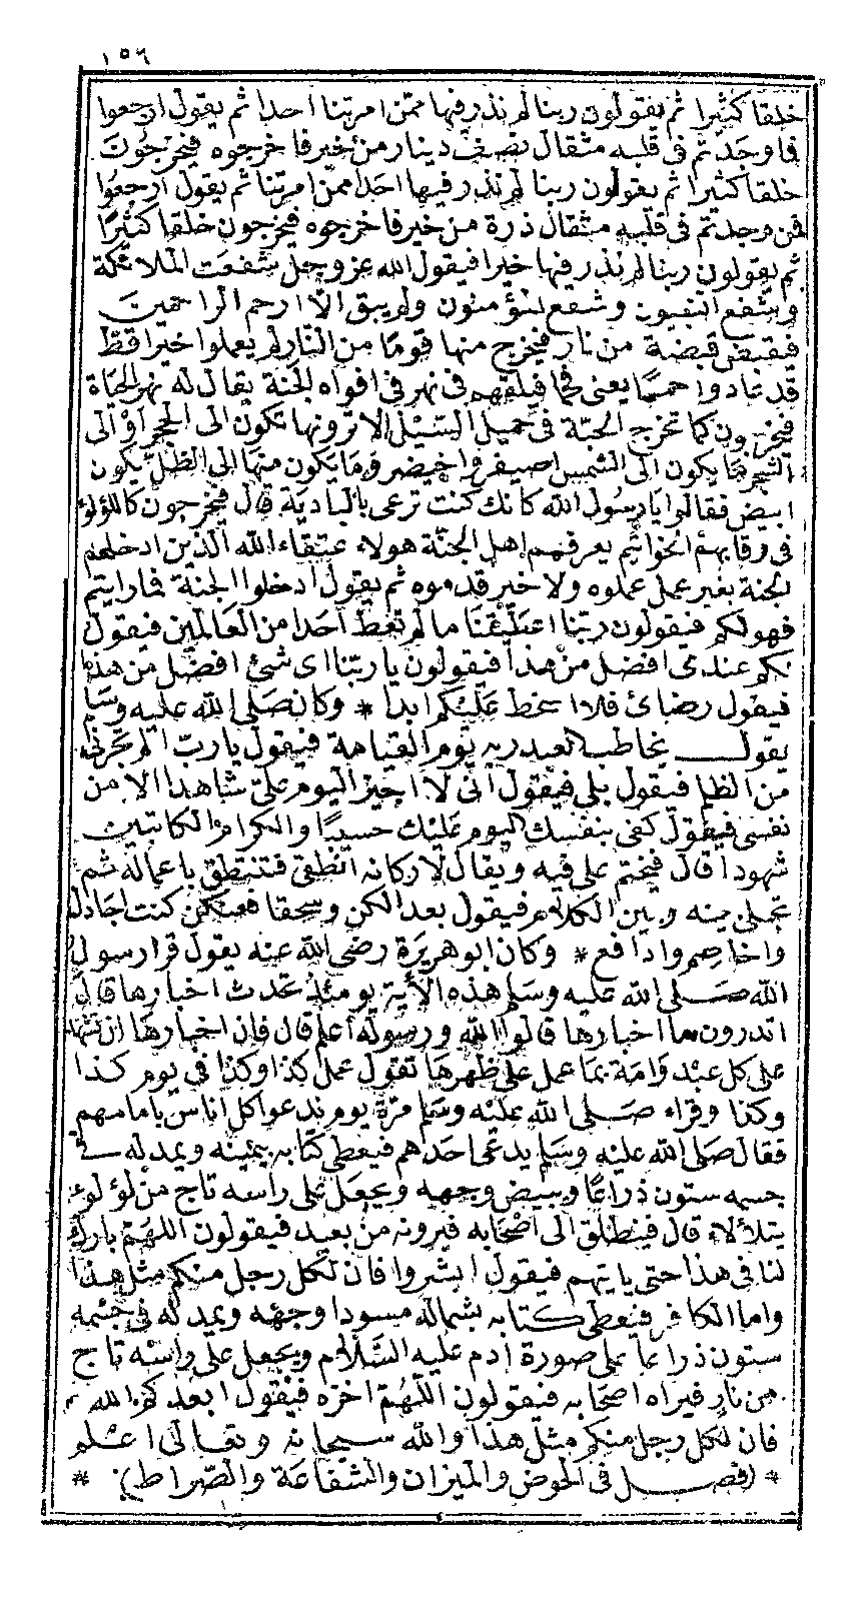 ١٥٦
خلقا كثيرا ثم يقولون ربنا لم نذر فيها ممن امرتنا احدا ثم يقول ارجعوا
فما وجدتم فى قلبه مثقال نصف دينار من خير فاخرجوه فيخرجون
خلقا كثيرا ثم يقولون ربنا لم نذر فيها احدا ممن امرتنا ثم يقول ارجعوا
فمن وجدتم فى قلبه مثقال ذرة من خير فاخرجوه فيخرجون خلقا كثيرا
ثم يقولون ربنا لم نذر فيها خيرا فيقول الله عز وجل شفعت الملائكة
وشفع النبيون وشفع المؤمنون ولم يبق الا ارحم الراحمين
فيقبض قبضة من نار فيخرج منها قوما من النار لم يعملوا خيرا قط
قد عادوا حمما يعنى فحما فيلقيهم فى نهر فى افواه الجنة يقال له نهر الحياة
فيخرجون كما تخرج الحبة فى حميل السيل الا ترونها تكون الى الحجر او الى
الشجر فما يكون الى الشمس اصيفر واخيضر وما يكون منها الى الظل يكون
ابيض فقالوا يا رسول الله كانك كنت ترعى بالبادية قال فيخرجون كاللؤلؤ
فى رقابهم الخواتم يعرفهم اهل الجنة هولاء عتقاء الله الذين ادخلهم
الجنة بغير عمل عملوه ولا خير قدموه ثم يقول ادخلوا الجنة فما رايتم
فهو لكم فيقولون ربنا اعطيتنا ما لم تعط احدا من العالمين فيقول
لكم عندى افضل من هذا فيقولون يا ربنا اى شئ افضل من هذا
فيقول رضائ فلا اسخط عليكم ابدا * وكان صلى الله عليه وسلم
يقول يخاطب العبد ربه يوم القيامة فيقول يا رب الم تجرنى
من الظلم فيقول بلى فيقول انى لا اجيز اليوم على شاهدا الا من
نفسى فيقول كفى بنفسك اليوم عليك حسيبا والكرام الكاتبين
شهودا قال فيختم على فيه ويقال لاركانه انطقى فتنطق باعماله ثم
يخلى بينه وبين الكلام فيقول بعدا لكن وسحقا فعنكن كنت اجادل
واخاصم وادافع * وكان ابو هريرة رضى الله عنه يقول قرا رسول
الله صلى الله عليه وسلم هذه الآية يومئذ تحدث اخبارها قال
اتدرون ما اخبارها قالوا الله ورسوله اعلم قال فان اخبارها ان تشهد
على كل عبد وامة بما عمل على ظهرها تقول عمل كذا وكذا فى يوم كذا
وكذا وقراء صلى الله عليه وسلم مرة يوم ندعوا كل اناس بامامهم
فقال صلى الله عليه وسلم يدعى احدهم فيعطى كتابه بيمينه ويمد له فى
جسمه ستون ذراعا ويبيض وجهه ويجعل على راسه تاج من لؤلوء
يتلألاء قال فينطلق الى اصحابه فيرونه من بعيد فيقولون اللهم بارك
لنا فى هذا حتى ياتيهم فيقول ابشروا فان لكل رجل منكم مثل هذا
واما الكافر فيعطى كتابه بشماله مسودا وجهه ويمد له فى جسمه
ستون ذراعا على صورة ادم عليه السلام ويجعل على راسه تاج
من نار فيراه اصحابه فيقولون اللهم اخزه فيقول ابعدكم الله
فان لكل رجل منكم مثل هذا والله سبحانه وتعالى اعلم
* (فصل فى الحوض والميزان والشفاعة والصراط) *